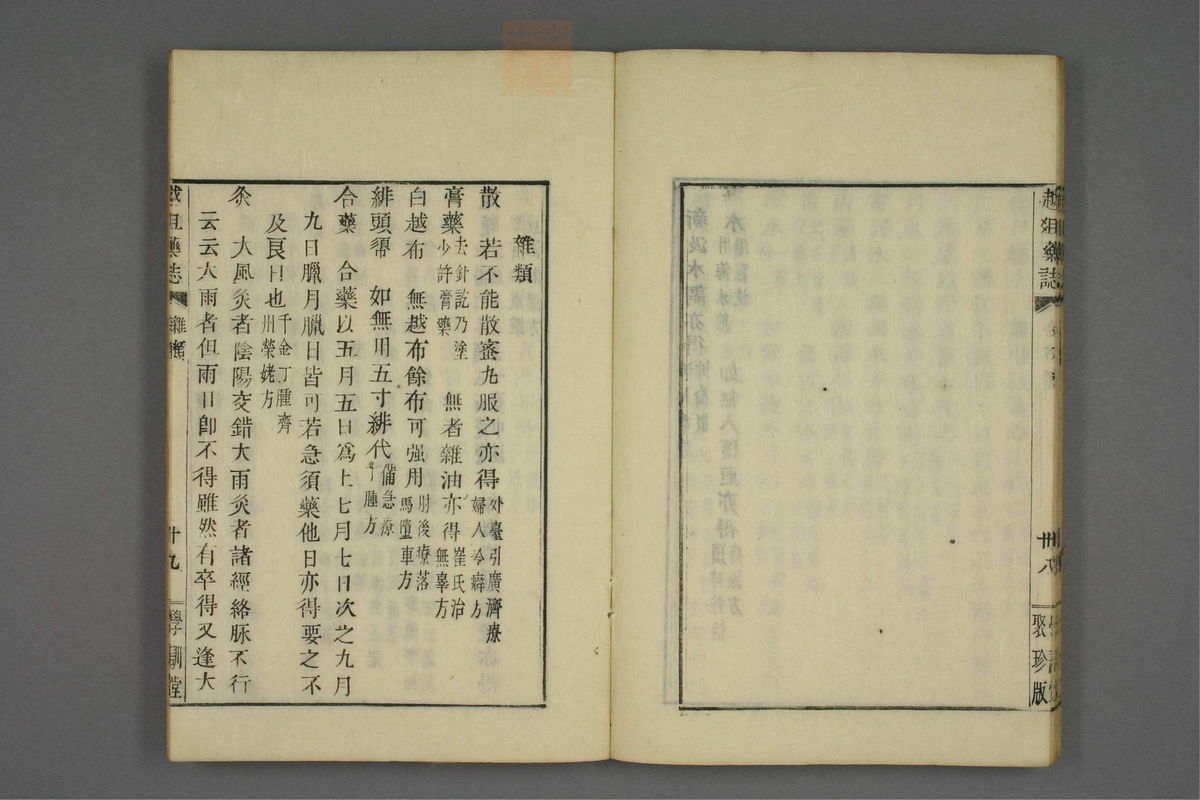 越俎藥誌
卅八
聚珍版
雜類
散　若不能散蜜丸服之亦得外臺引廣濟療婦人冷癖方
膏藥去針訖乃塗少許膏藥　無者雜油亦得崔氏治無辜方
白越布　無越布餘布可强用肘後療落馬墮車方
緋頭𢄼　如無用五寸緋代備急療丁腫方
合藥　合藥以五月五日爲上七月七日次之九月
九日臘月臘日皆可若急須藥他日亦得要之不
及艮日也千金丁腫齊州榮姥方
灸　大風灸者陰陽交錯大雨灸者諸經絡脉不行
云云大雨者但雨日卽不得雖然有卒得又逢大
越俎藥誌
雜類
廿九
學訓堂